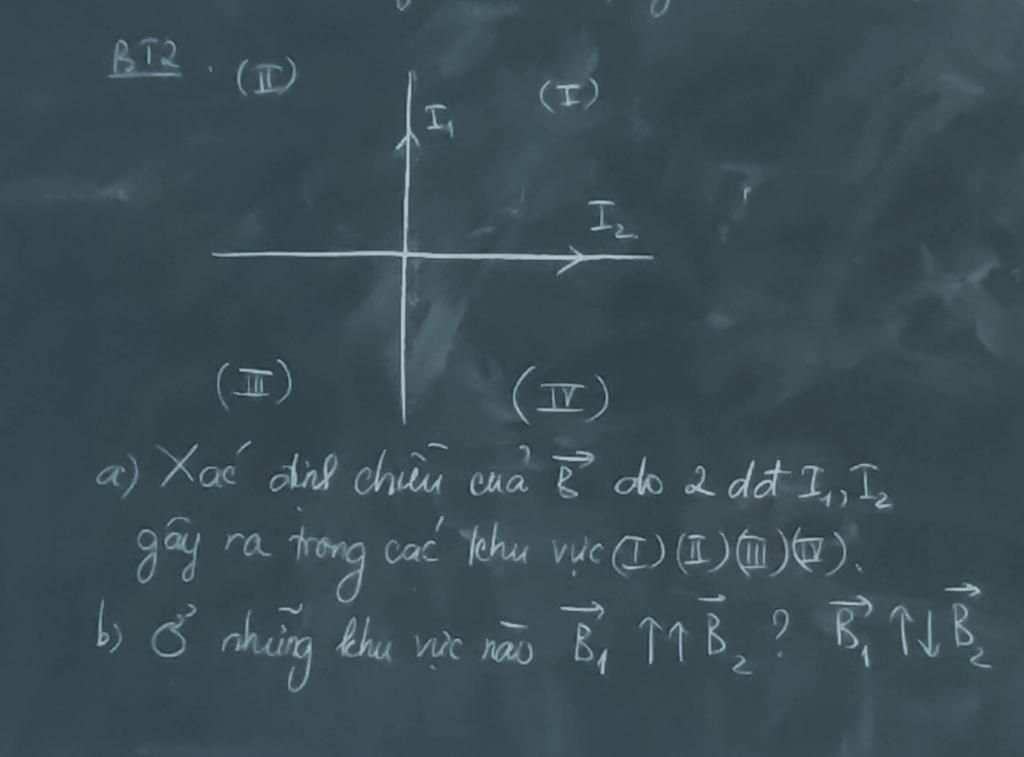 BT2. (II) (I)
I₁
I₂
(III) (IV)
a) Xác định chiều của B⃗ do 2 dđ I₁, I₂
gây ra trong các khu vực (I) (II) (III) (IV).
b) Ở những khu vực nào B₁⃗ ↑↑ B₂⃗ ? B₁⃗ ↑↓ B₂⃗